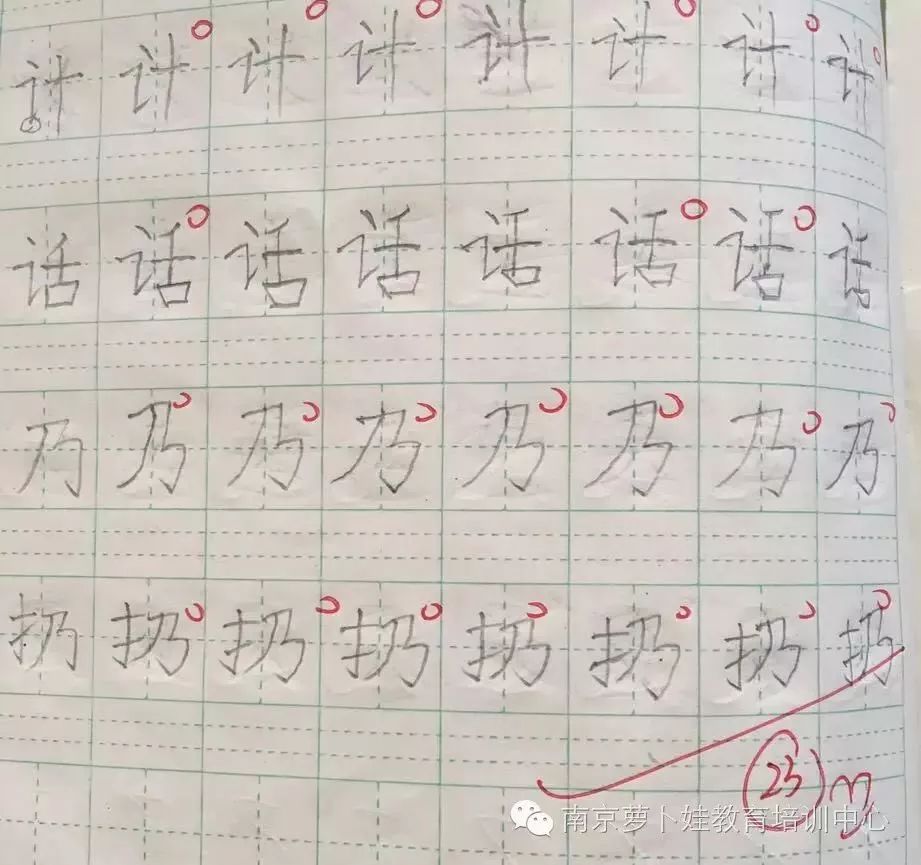 计计计计计计计计
话话话话话话话话
乃乃乃乃乃乃乃乃
扔扔扔扔扔扔扔扔
23
南京萝卜娃教育培训中心